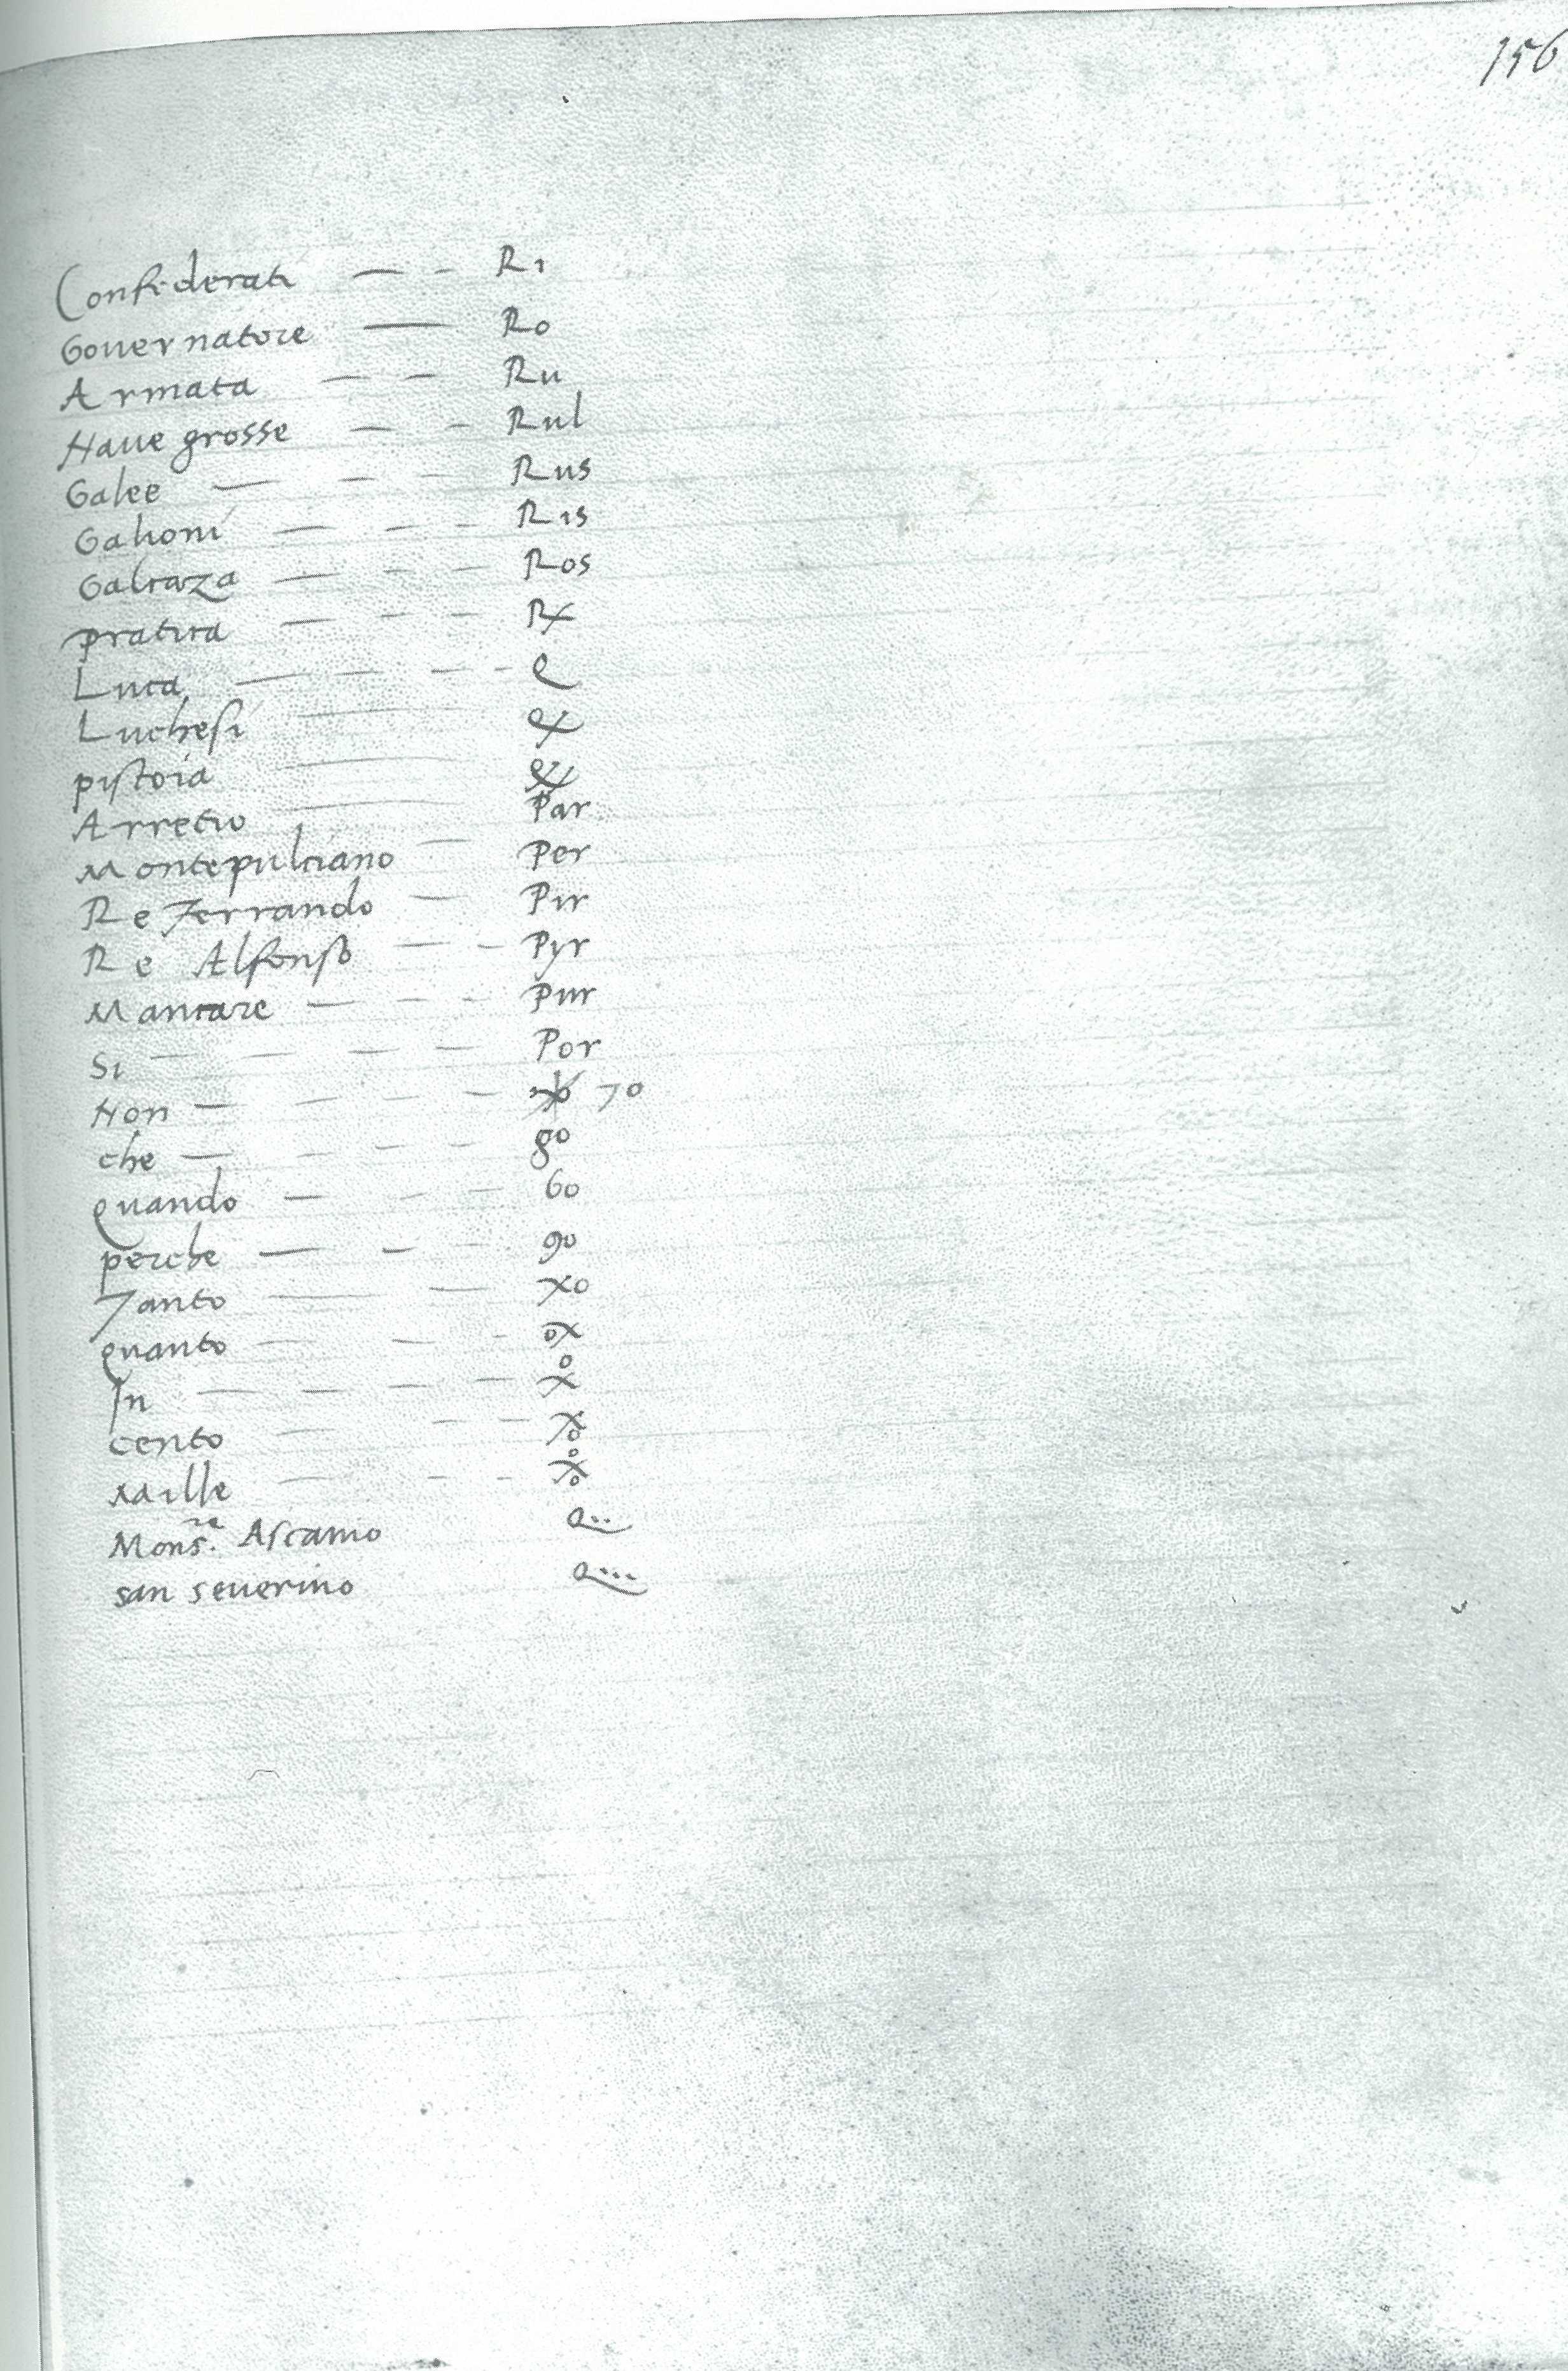 156
Confiderati — - R1
Gouernatore — Ro
Armata — - Ru
Naue grosse — - Rul
Galee — - - Rus
Galioni — - - R1s
Galiaza — - - Ros
pratica — - - Rx
Luca — - - - e
Luchesi —
pistoia —
Arretio — Par
Montepulciano — Per
Re Ferrando — Pir
Re Alfonso — - Pyr
Mancare — - - Pur
Si — - - - Por
Non — - - - 70
che — - - - 80
quando — - - 60
perche — - - 90
Tanto — - xo
quanto — - - - ox
In — - - -
cento — - -
Mille — - -
Monsre. Ascanio
san seuerino